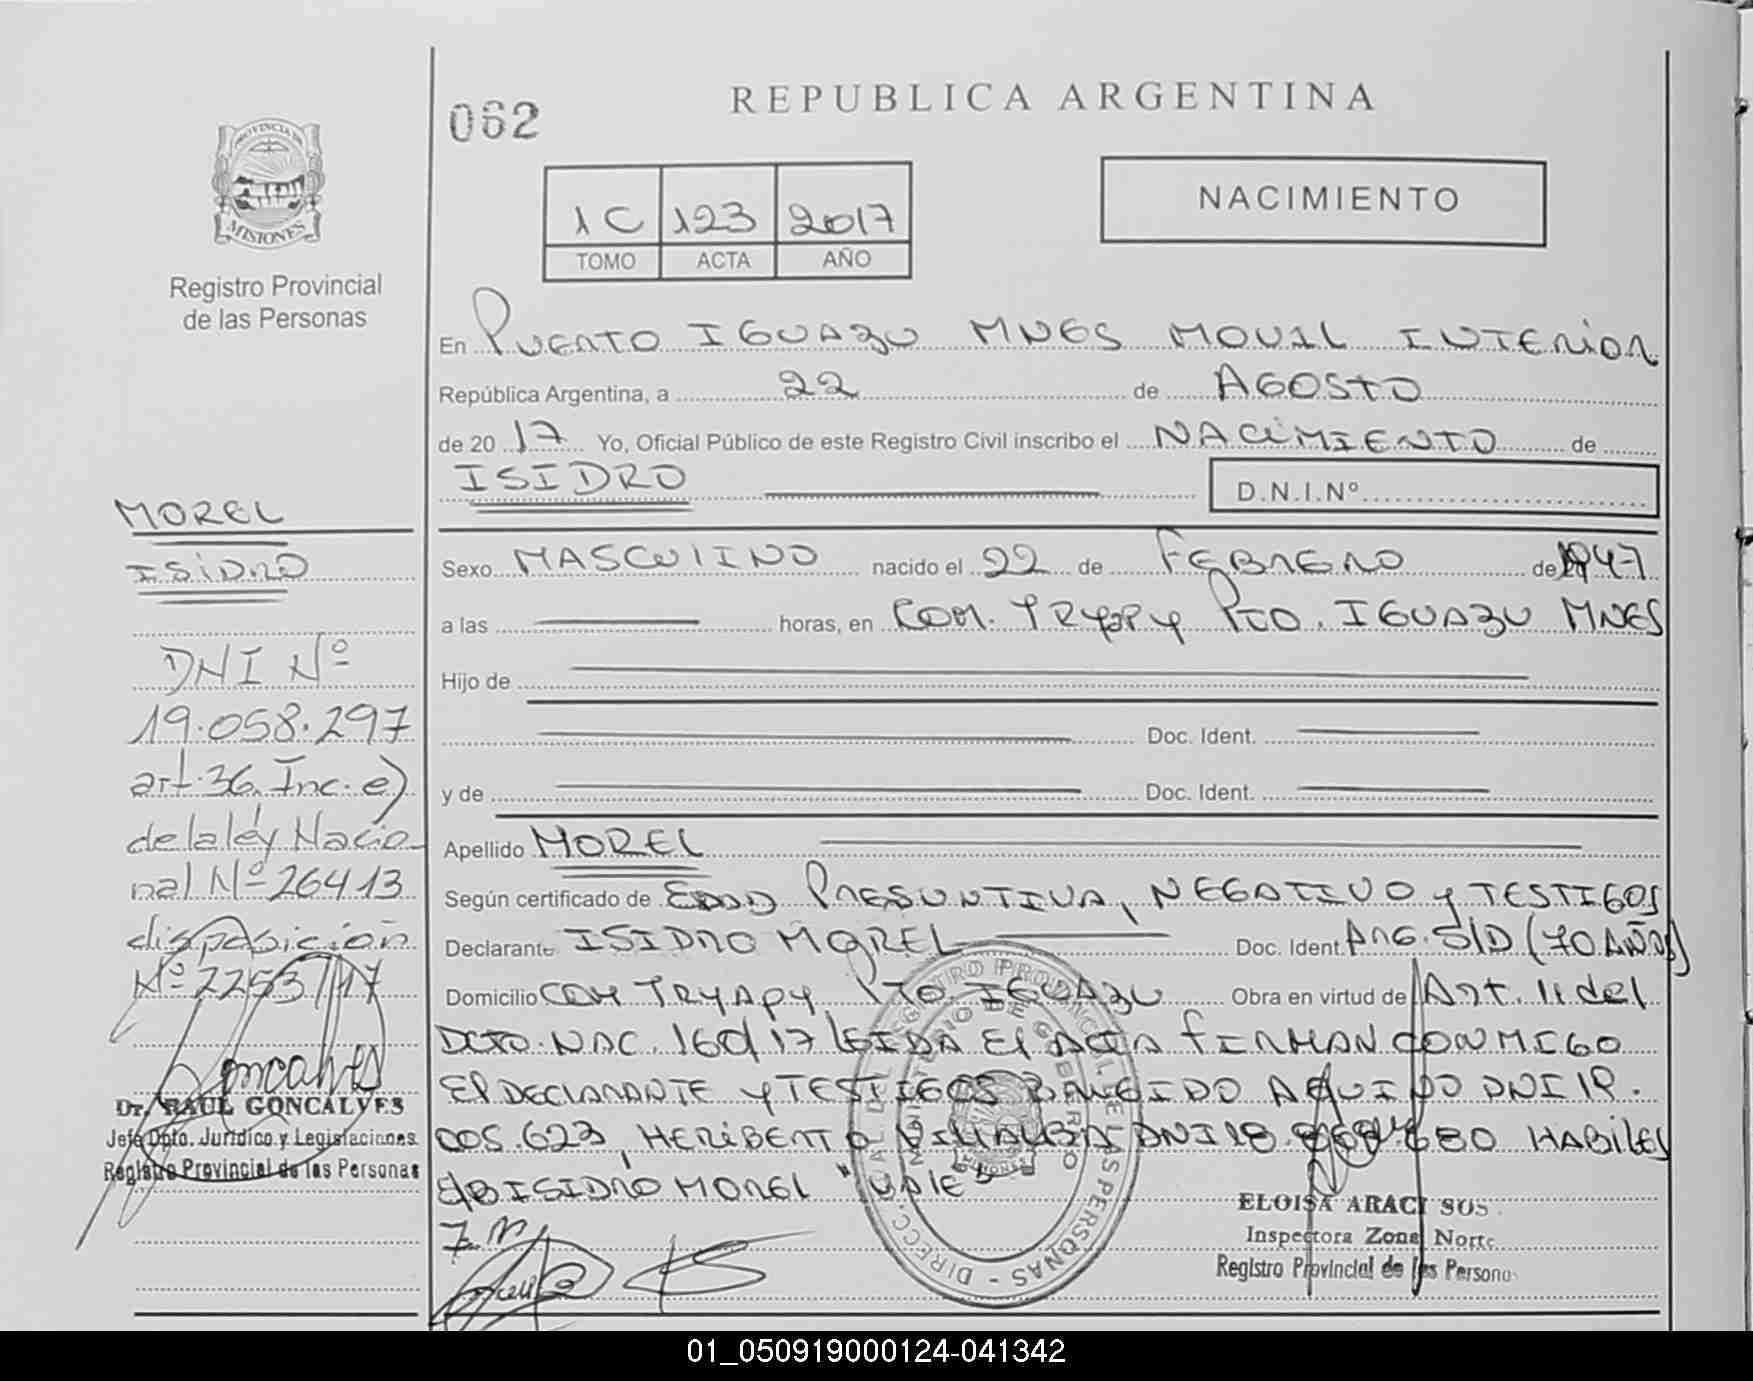 062
REPUBLICA ARGENTINA
NACIMIENTO
1C 123 2017
TOMO ACTA AÑO
PROVINCIA DE
MISIONES
Registro Provincial
de las Personas
MOREL
ISIDRO
DNI Nº
19.058.297
art. 36. Inc. e)
de la léy Nacio
nal Nº 26413
disposición
Nº 2253/17
Goncalves
Dr. RAUL GONCALVES
Jefe Dpto. Jurídico y Legislaciones
Registro Provincial de las Personas
En PUERTO IGUAZU MNES MOVIL INTERIOR
República Argentina, a 22 de AGOSTO
de 20 17 Yo, Oficial Público de este Registro Civil inscribo el NACIMIENTO de
ISIDRO D.N.I.Nº
Sexo MASCULINO nacido el 22 de FEBRERO de 1947
a las horas, en COM. TRYAPY PTO. IGUAZU MNES
Hijo de
Doc. Ident.
y de Doc. Ident.
Apellido MOREL
Según certificado de EDAD PRESUNTIVA, NEGATIVO y TESTIGOS
Declarante ISIDRO MOREL Doc. Ident. ARG. S/D (70 AÑOS)
Domicilio COM TRYAPY PTO. IGUAZU Obra en virtud de Art. 11 del
DCTO. NAC. 160/17 LEIDA El ACTA FIRMAN CONMIGO
El DECLARANTE y TESTIGOS AQUINO DNI 19.
005.623, HERIBERTO VILLALBA DNI 18. 680 HABILES
ISIDRO MOREL "VALE"
ELOISA ARACI SOS
Inspectora Zona Norte
Registro Provincial de las Personas
01_050919000124-041342